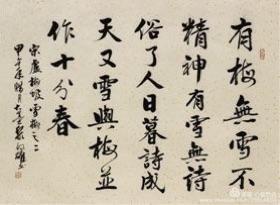 有梅無雪不
精神有雪無詩
俗了人日暮詩成
天又雪與梅並
作十分春
宋盧梅坡雪梅之二